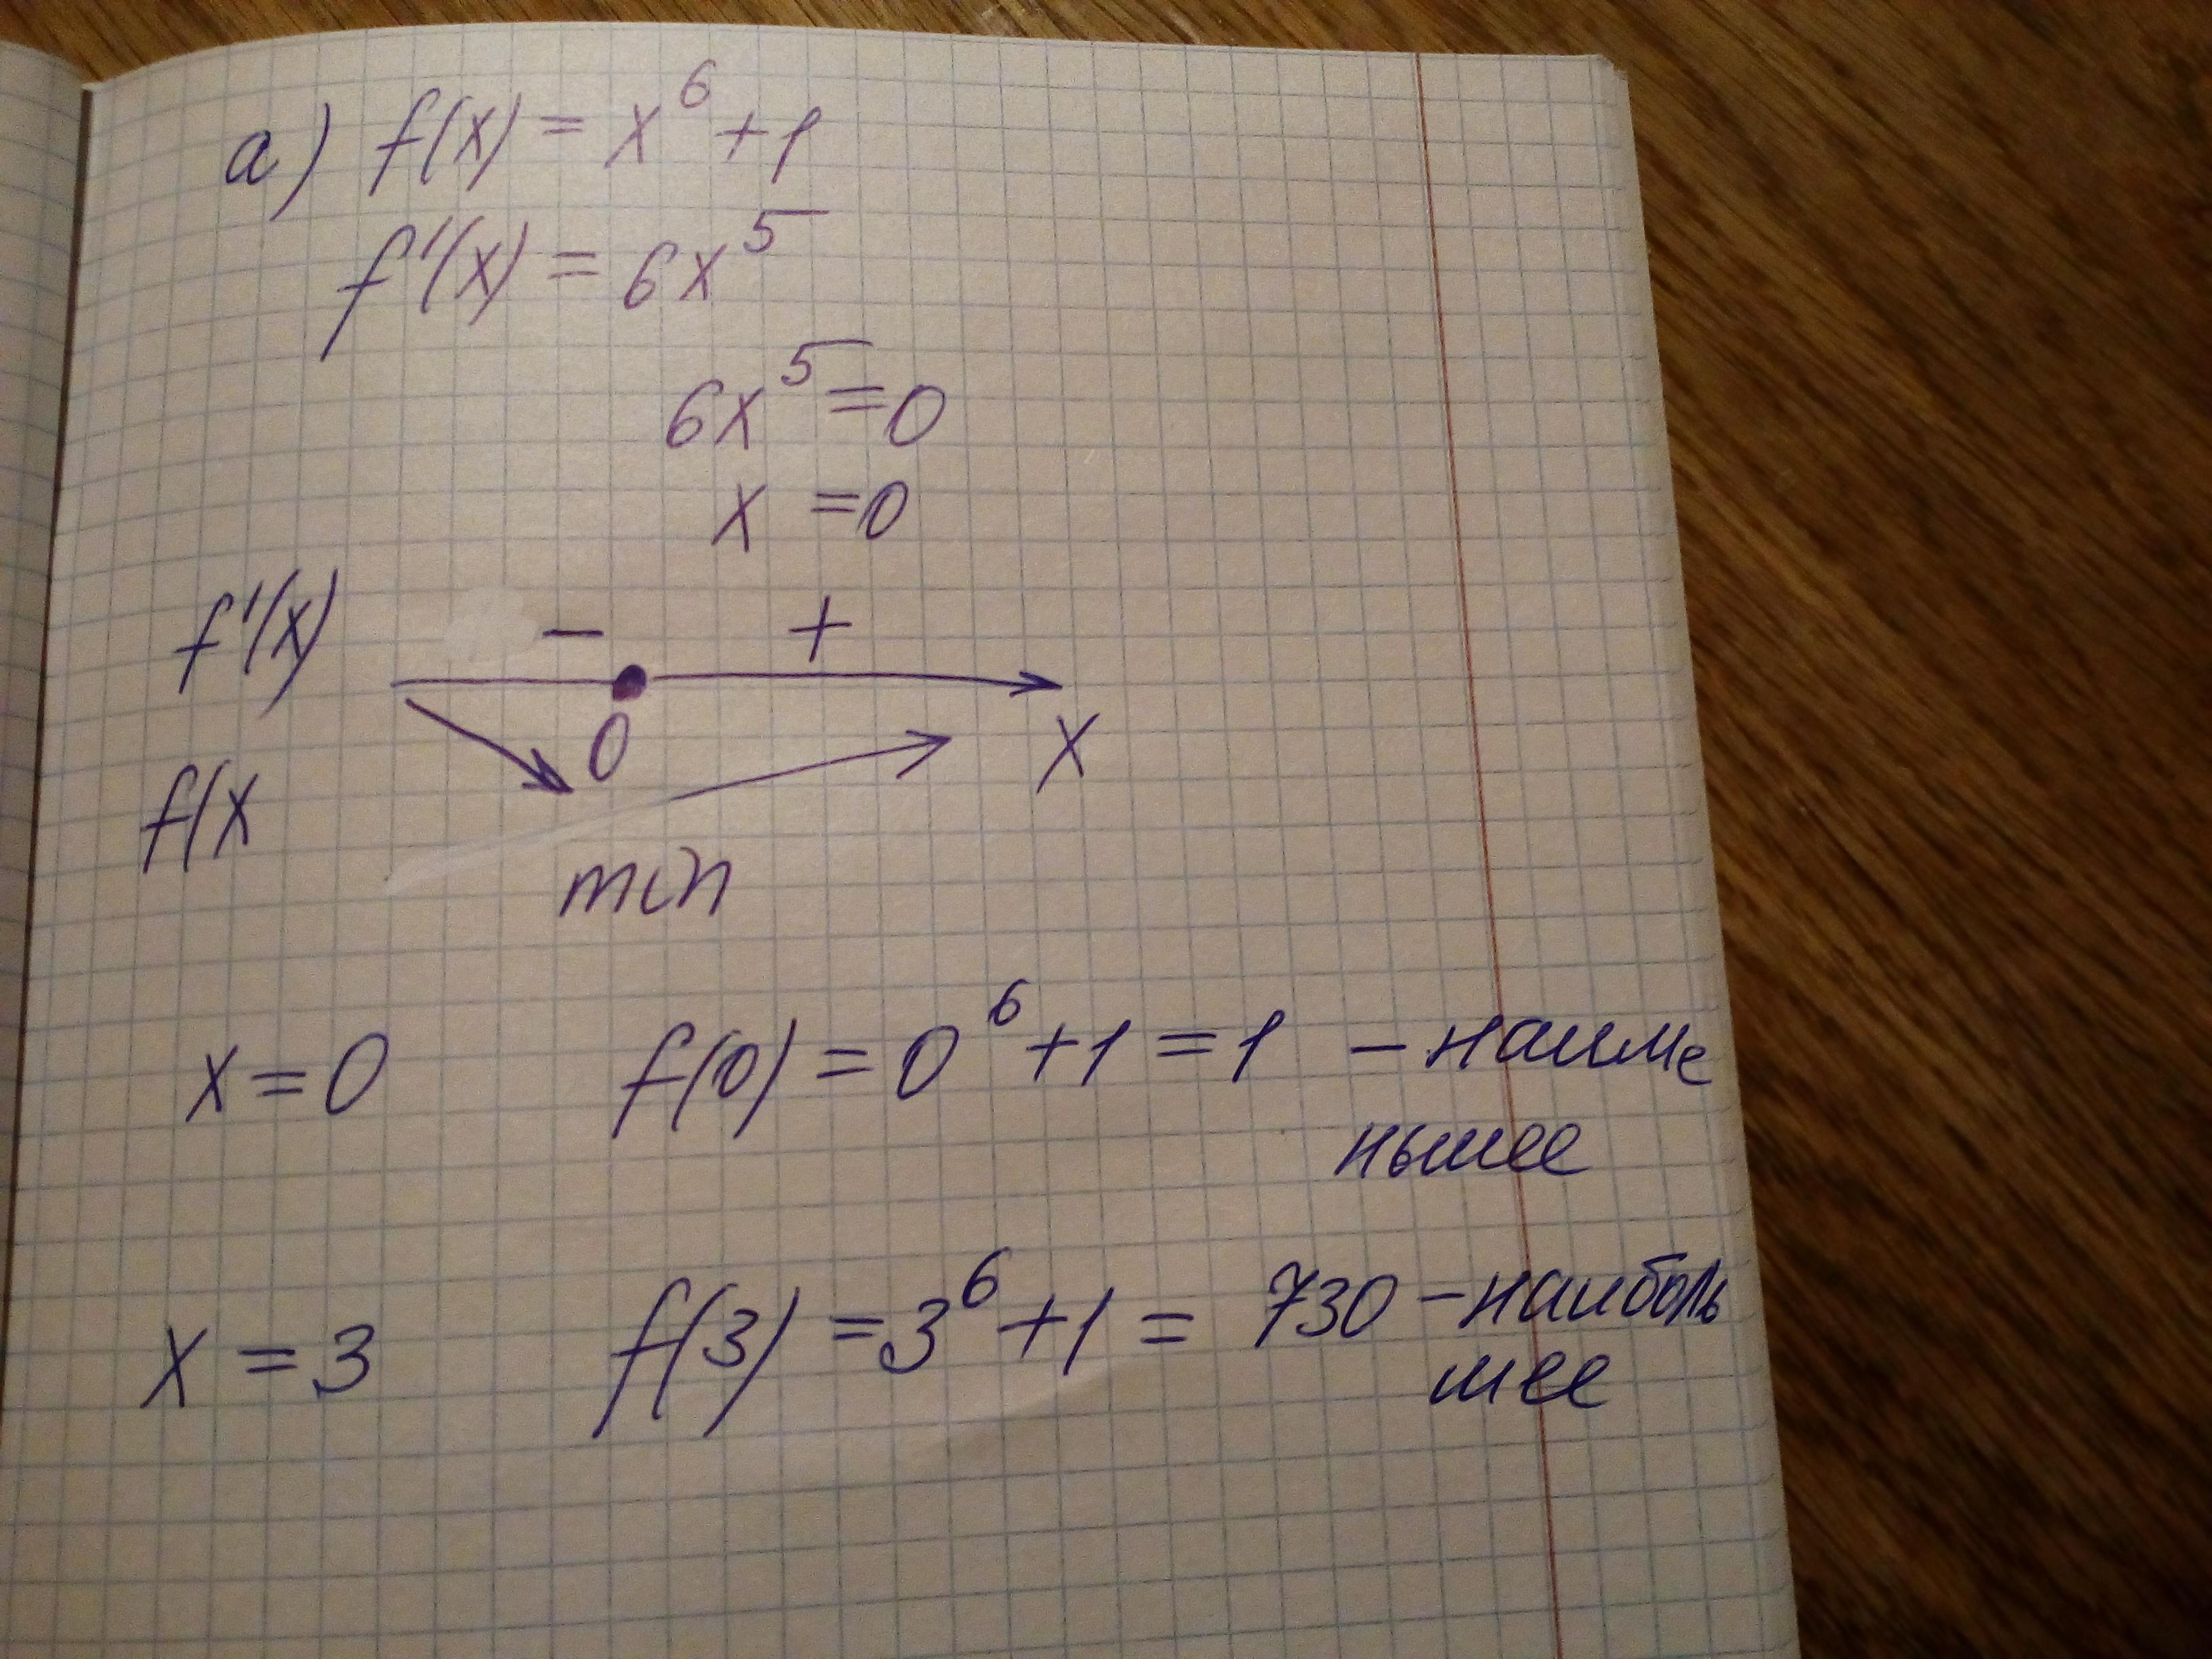 а) f(x) = x⁶ + 1
f'(x) = 6x⁵
6x⁵ = 0
x = 0
f'(x) − +
0 x
f(x
min
x = 0 f(0) = 0⁶ + 1 = 1 – наиме
ньшее
x = 3 f(3) = 3⁶ + 1 = 730 – наиболь
шее